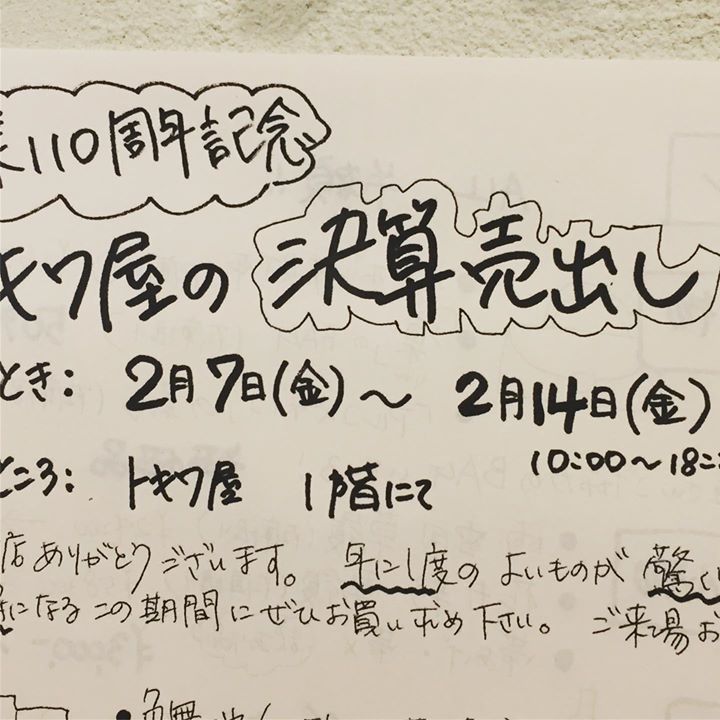 業110周年記念
キワ屋の 決算売出し
とき: 2月7日(金)〜 2月14日(金)
10:00〜18:
ところ: トキワ屋 1階にて
店ありがとうございます。 年に1度の よいものが 驚く
になる この期間に ぜひお買い求め下さい。 ご来場お